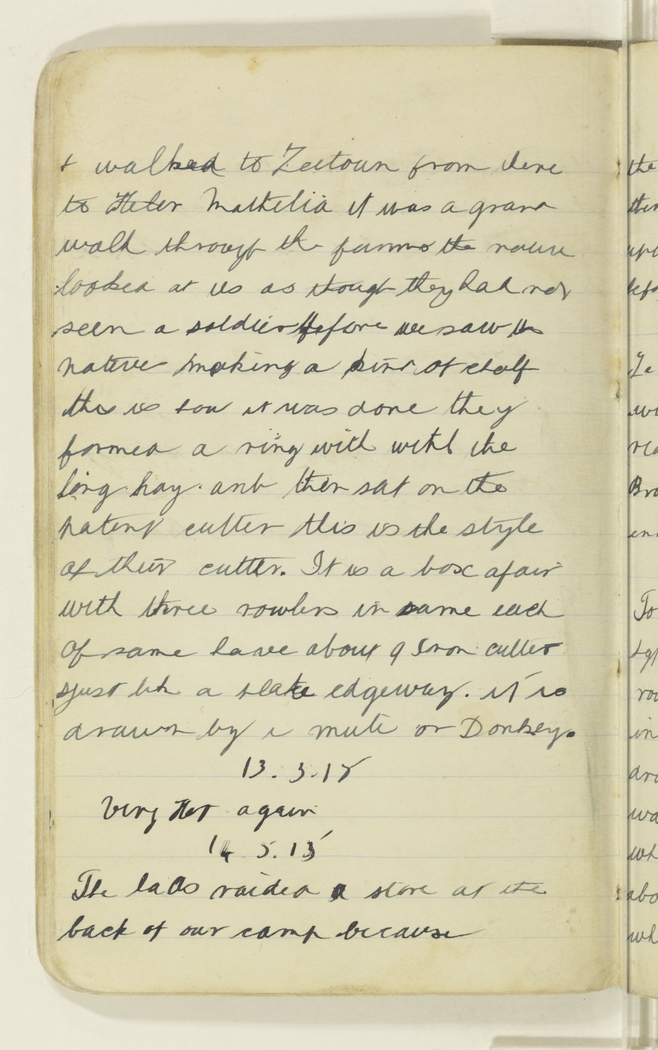 & walked to Zeitoun from there
to Heler Mathelia it was a grand
walk through the farms the native
looked at us as though they had not
seen a soldier before we saw the
native making a kind of chalf
this is how it was done they
formed a ring with with the
long hay. and then sat on the
patent cutter this is the style
of their cutter. It is a box afair
with three rowlers in same each
of same have about 9 Iron cutter
just like a slate edgeway. it is
drawn by a mule or Donkey.
13. 5. 15
Very Hot again
14 5. 15
The lads raided a store at the
back of our camp because